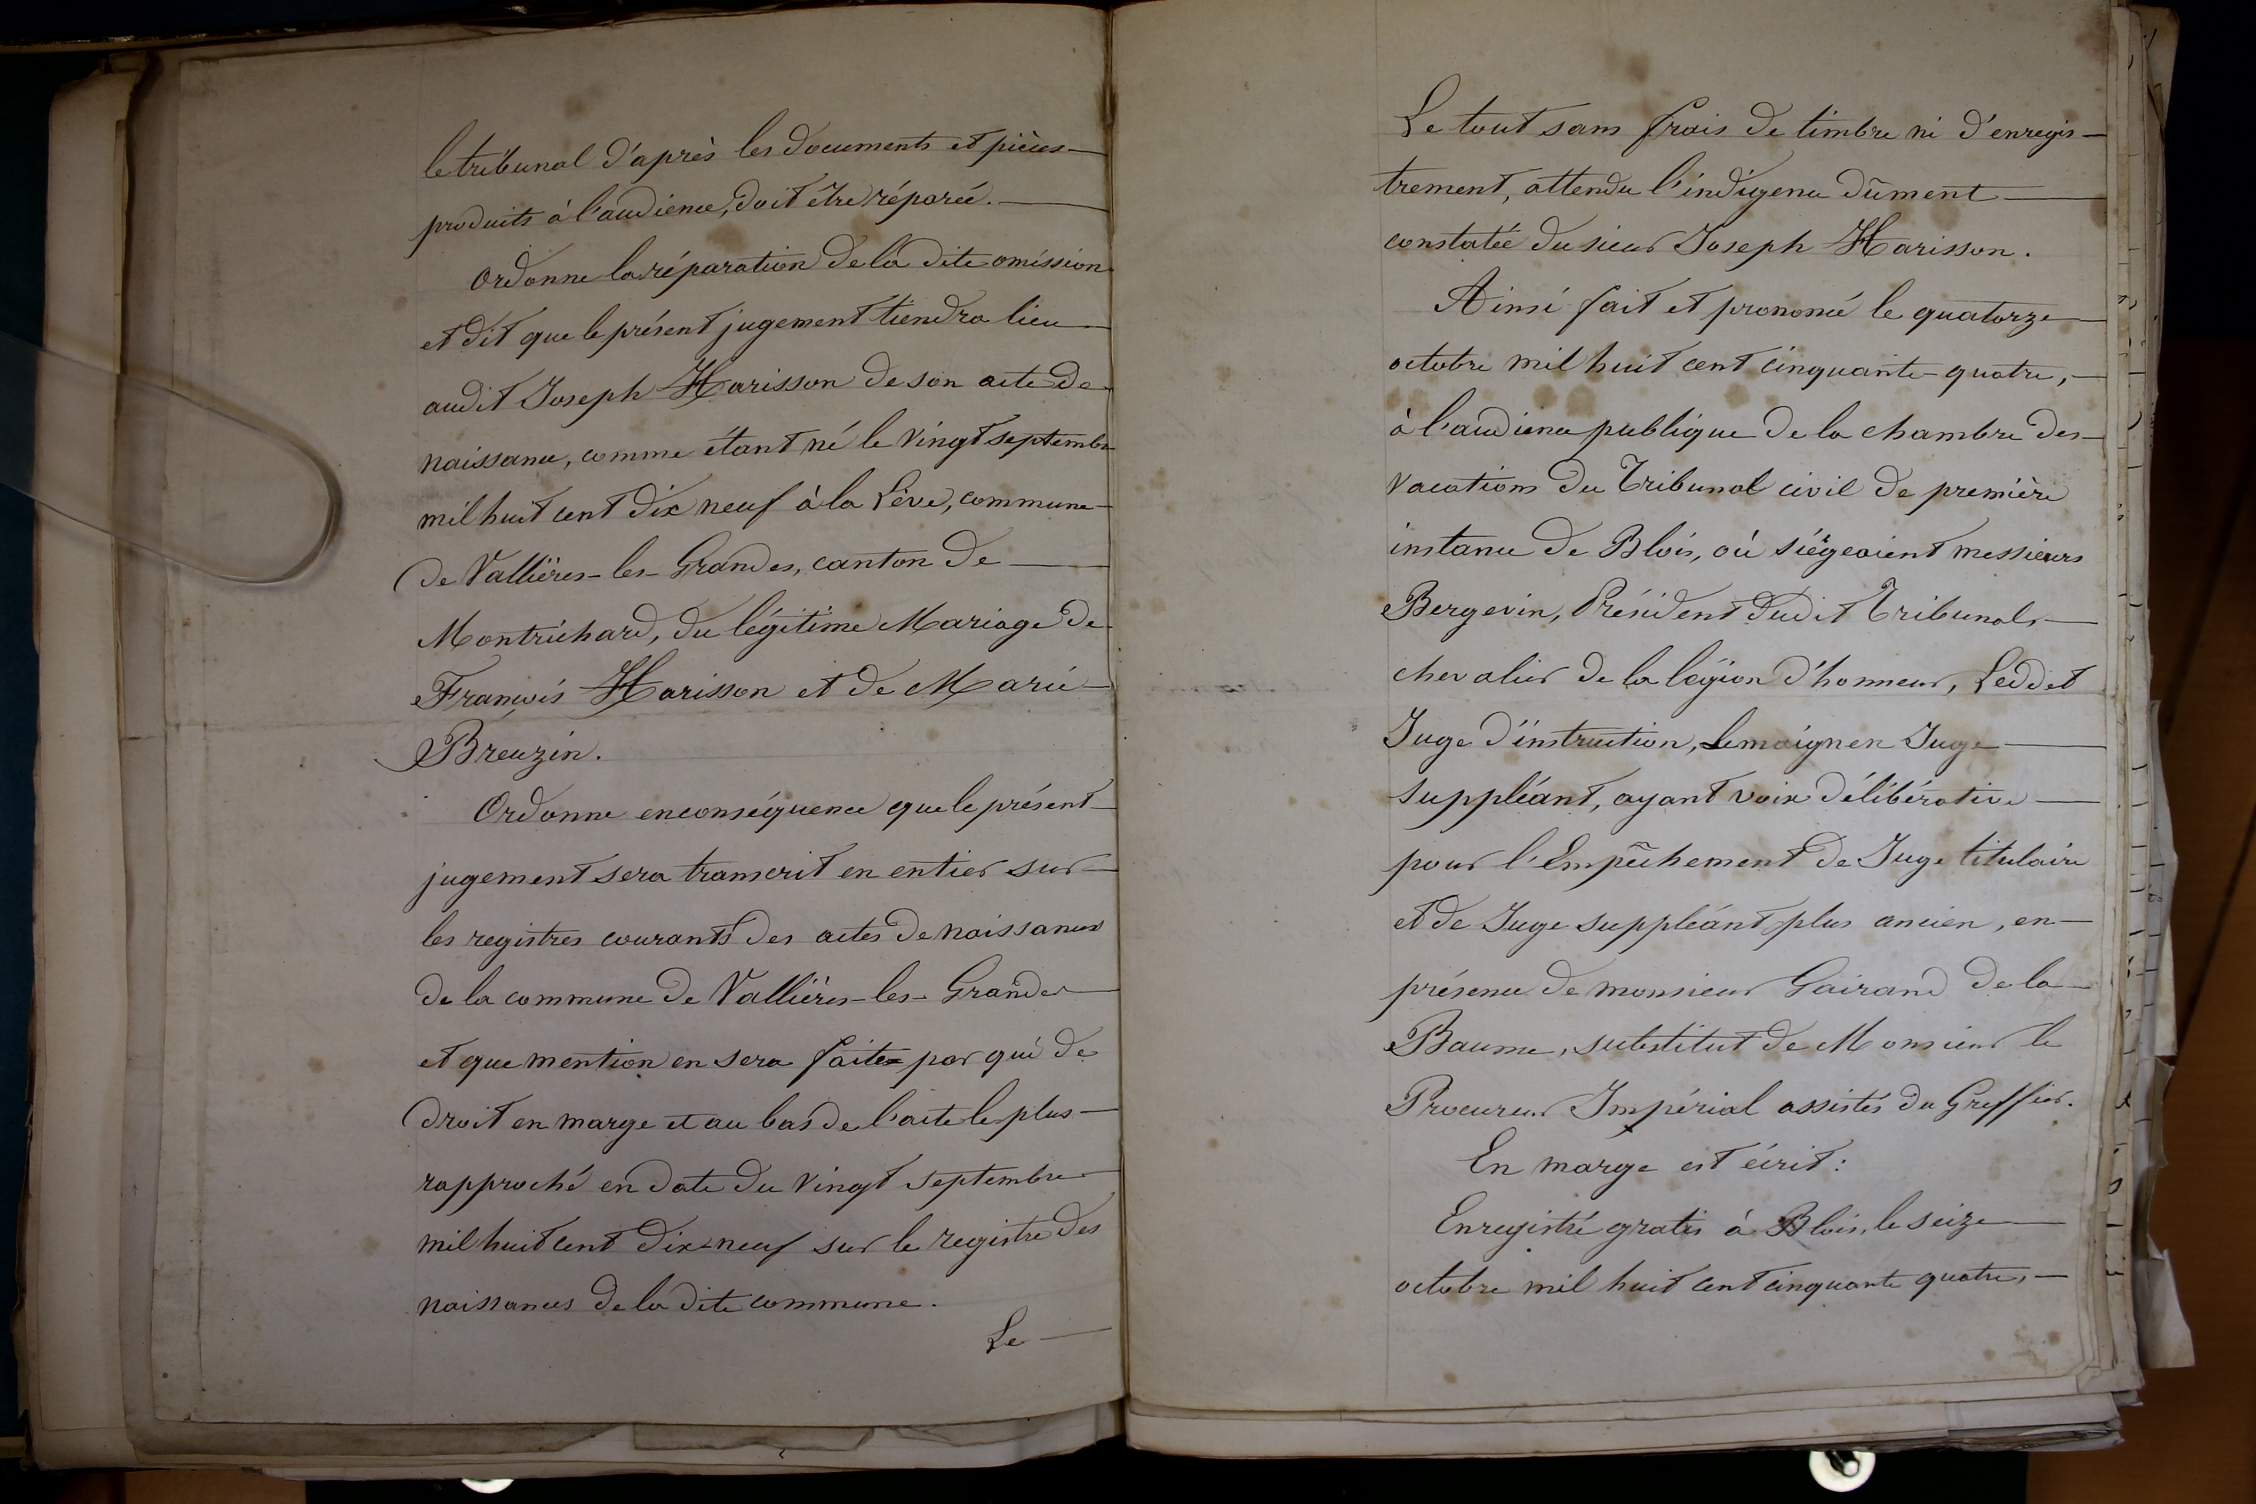 le tribunal d'après les documents et pièces
produits à l'audience, doit être réparée.
Ordonne la réparation de la dite omission
et dit que le présent jugement tiendra lieu
audit Joseph Harisson de son acte de
naissance, comme étant né le vingt septembre
mil huit cent dix neuf à la Lève, commune
de Vallières-les-Grandes, canton de
Montrichard, du légitime Mariage de
François Harisson et de Marie
Breuzin.
Ordonne en conséquence que le présent
jugement sera transcrit en entier sur
les registres courants des actes de naissances
de la commune de Vallières-les-Grandes
et que mention en sera faite par qui de
droit en marge et au bas de l'acte le plus
rapproché en date du vingt septembre
mil huit cent dix-neuf sur le registre des
naissances de la dite commune.
Le
Le tout sans frais de timbre ni d'enregis-
trement, attendu l'indigence dûment
constatée du sieur Joseph Harisson.
Ainsi fait et prononcé le quatorze
octobre mil huit cent cinquante-quatre,
à l'audience publique de la chambre des
vacations du Tribunal civil de première
instance de Blois, où siégeaient messieurs
Bergevin, Président dudit Tribunal,
chevalier de la légion d'honneur, Leddet
Juge d'instruction, Lemaignen Juge
suppléant, ayant voix délibérative
pour l'Empêchement de Juge titulaire
et de Juge suppléant plus ancien, en
présence de monsieur Gairand de la
Baume, substitut de Monsieur le
Procureur Impérial assistés du Greffier.
En marge est écrit:
Enregistré gratis à Blois, le seize
octobre mil huit cent cinquante quatre,